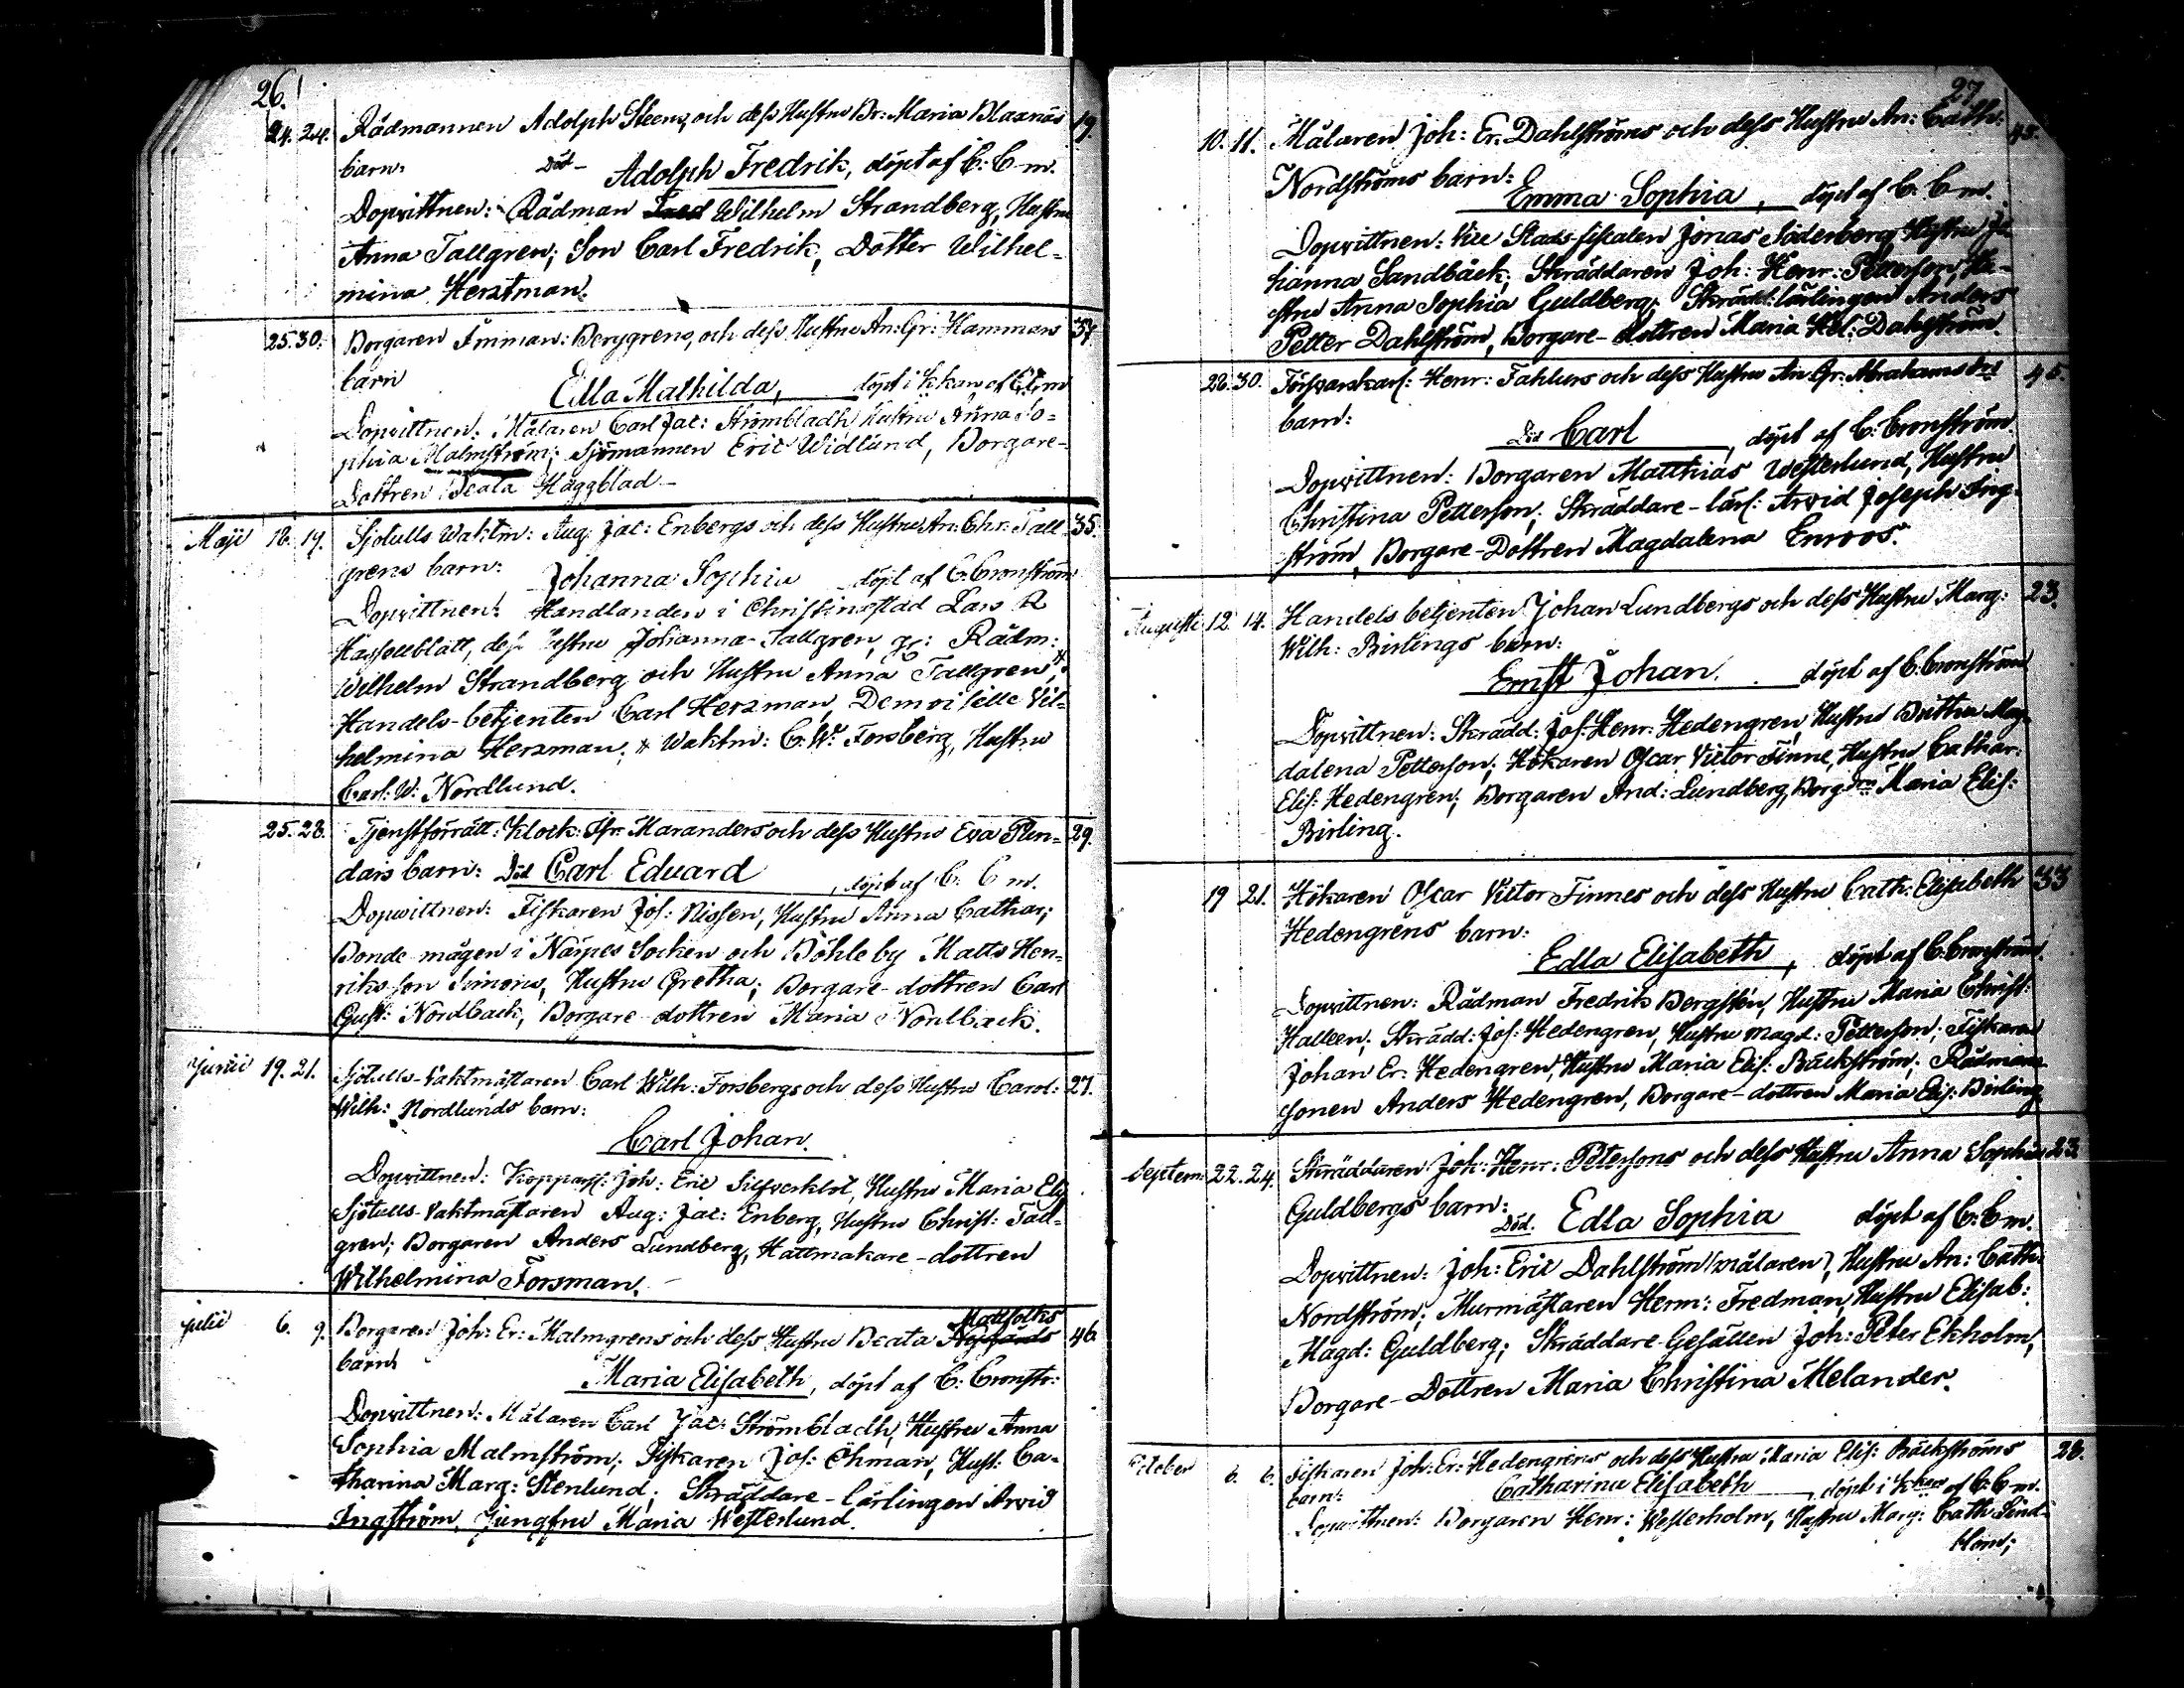 26.
24. 24. Rådmannen Adolph Steens, och dess Hustru Br: Maria Blaxnäs 19.
barn: Död – Adolph Fredrik, döpt af C: C-m.
Dopvittnen: Rådman Wilhelm Strandberg, Hustru
Anna Tallgren; Son Carl Fredrik, Dotter Wilhel-
mina Herztman.
25. 30. Borgaren Berggrens, och dess Hustru An: Gr: Hammars 37.
barn
Edla Mathilda, döpt i kkan af C: C-m
Dopvittnen: Målaren Carl Jac: Strömbladh, Hustru Anna So-
phia Malmström; Sjömannen Eric Widlund, Borgare-
Dottren Beata Häggblad –
Maji 18. 19. Sjötulls Waktm: Aug: Jac: Enbergs och dess Hustru An: Chr: Tall 35.
grens barn: Johanna Sophia döpt af C: Cronström
Dopvittnen: Handlanden i Christinestad Lars R
Hasselblatt, dess Hustru Johanna Tallgren, Rådm:
Wilhelm Strandberg och Hustru Anna Tallgren,
Handels-betjenten Carl Herzman, Demoiselle Vil-
helmina Herzman; Waktm: C: W: Forsberg, Hustru
Carl: W: Nordlund.
25. 28. Tjenstförrätt: Klock: Maranders och dess Hustru Eva 29.
dais barn: Död Carl Eduard, döpt af C: C-m.
Dopvittnen: Fiskaren Jos: Nissen, Hustru Anna Cathar;
Bonde mågen i Närpes Socken och Böhle by Matts Hen-
riks-son Simons, Hustru Gretha; Borgare-dottren Carl
Gust: Nordback, Borgare-dottren Maria Nordback.
Junii 19. 21. Sjötulls-Vaktmästaren Carl Wilh: Forsbergs och dess Hustru Carol: 27.
Wilh: Nordlunds barn:
Carl Johan.
Dopvittnen: Joh: Eric Hustru Maria Elis
Sjötulls-Vaktmästaren Aug: Jac: Enberg, Hustru Christ: Tall-
gren; Borgaren Anders Lundberg, Hattmakare-dottren
Wilhelmina Forsman. –
Mattfolks
Julii 6. 9. Borgaren Joh: Er: Malmgrens och dess Hustru Beata 46.
barn
Maria Elisabeth, döpt af C: Cronstr:
Dopvittnen: Målaren Carl Jac: Strömbladh, Hustru Anna
Sophia Malmström; Fiskaren Jos: Öhman, Hust: Ca-
tharina Marg: Stenlund; Skräddare-lärlingen Arvid
Ingström, Jungfru Maria Westerlund.
27.
10. 11. Målaren Joh: Er: Dahlströms och dess Hustru An: Cath: 45.
Nordströms barn:
Emma Sophia, döpt af C: C-m.
Dopvittnen: Vice Stads-fiskalen Jonas Söderberg, Hustru Jo-
hanna Sandbäck; Skräddaren Joh: Henr: Petterson, Hu-
stru Anna Sophia Guldberg; Skrädd: lärlingen Anders
Petter Dahlström, Borgare-dottren Maria Hel: Dahlström
28. 30. Försvarskarl: Henr: Fahlers och dess Hustru An Gr: Abrahams drs 45.
barn:
Död Carl, döpt af C: Cronström
Dopvittnen: Borgaren Matthias Westerlund, Hustru
Christina Petterson; Skräddare-lärl: Arvid Joseph Ing-
ström, Borgare-Dottren Magdalena Enroos.
Augusti 12. 14. Handels betjenten Johan Lundbergs och dess Hustru Marg: 23.
Wilh: Birlings barn:
Ernst Johan. döpt af C: Cronström
Dopvittnen: Skrädd: Jos: Henr: Hedengren, Hustru Britha Mag-
dalena Petterson; Hökaren Oscar Victor Finne, Hustru Cathar:
Elis: Hedengren; Borgaren And: Lundberg, Borg: Maria Elis:
Birling.
19 21. Hökaren Oscar Victor Finnes och dess Hustru Cath: Elisabeth 33
Hedengrens barn:
Edla Elisabeth, döpt af C: Cronström.
Dopvittnen: Rådman Fredrik Bergsten, Hustru Maria Christ:
Halleen; Skrädd: Jos: Hedengren, Hustru Magd: Petterson; Fiskaren
Johan Er: Hedengren, Hustru Maria Elis: Bäckström; Rådmans
sonen Anders Hedengren, Borgare-dottren Maria Elis: Birling
Septem: 22. 24. Skräddaren Joh: Henr: Petersons och dess Hustru Anna Sophia 23.
Guldbergs barn:
Död. Edla Sophia döpt af C: C-m.
Dopvittnen: Joh: Eric Dahlström (målaren), Hustru An: Cath:
Nordström; Murmästaren Herm: Fredman, Hustru Elisab:
Magd: Guldberg; Skräddare-Gesällen Joh: Peter Ekholm,
Borgare-Dottren Maria Christina Melander.
October 6. 6. Fiskaren Joh: Er: Hedengrens och dess Hustru Maria Elis: Bäckströms 28.
barn: Catharina Elisabeth, döpt i kkan af C: C-m.
Dopvittnen: Borgaren Henr: Westerholm, Hustru Marg: Cath Lind-
blom;